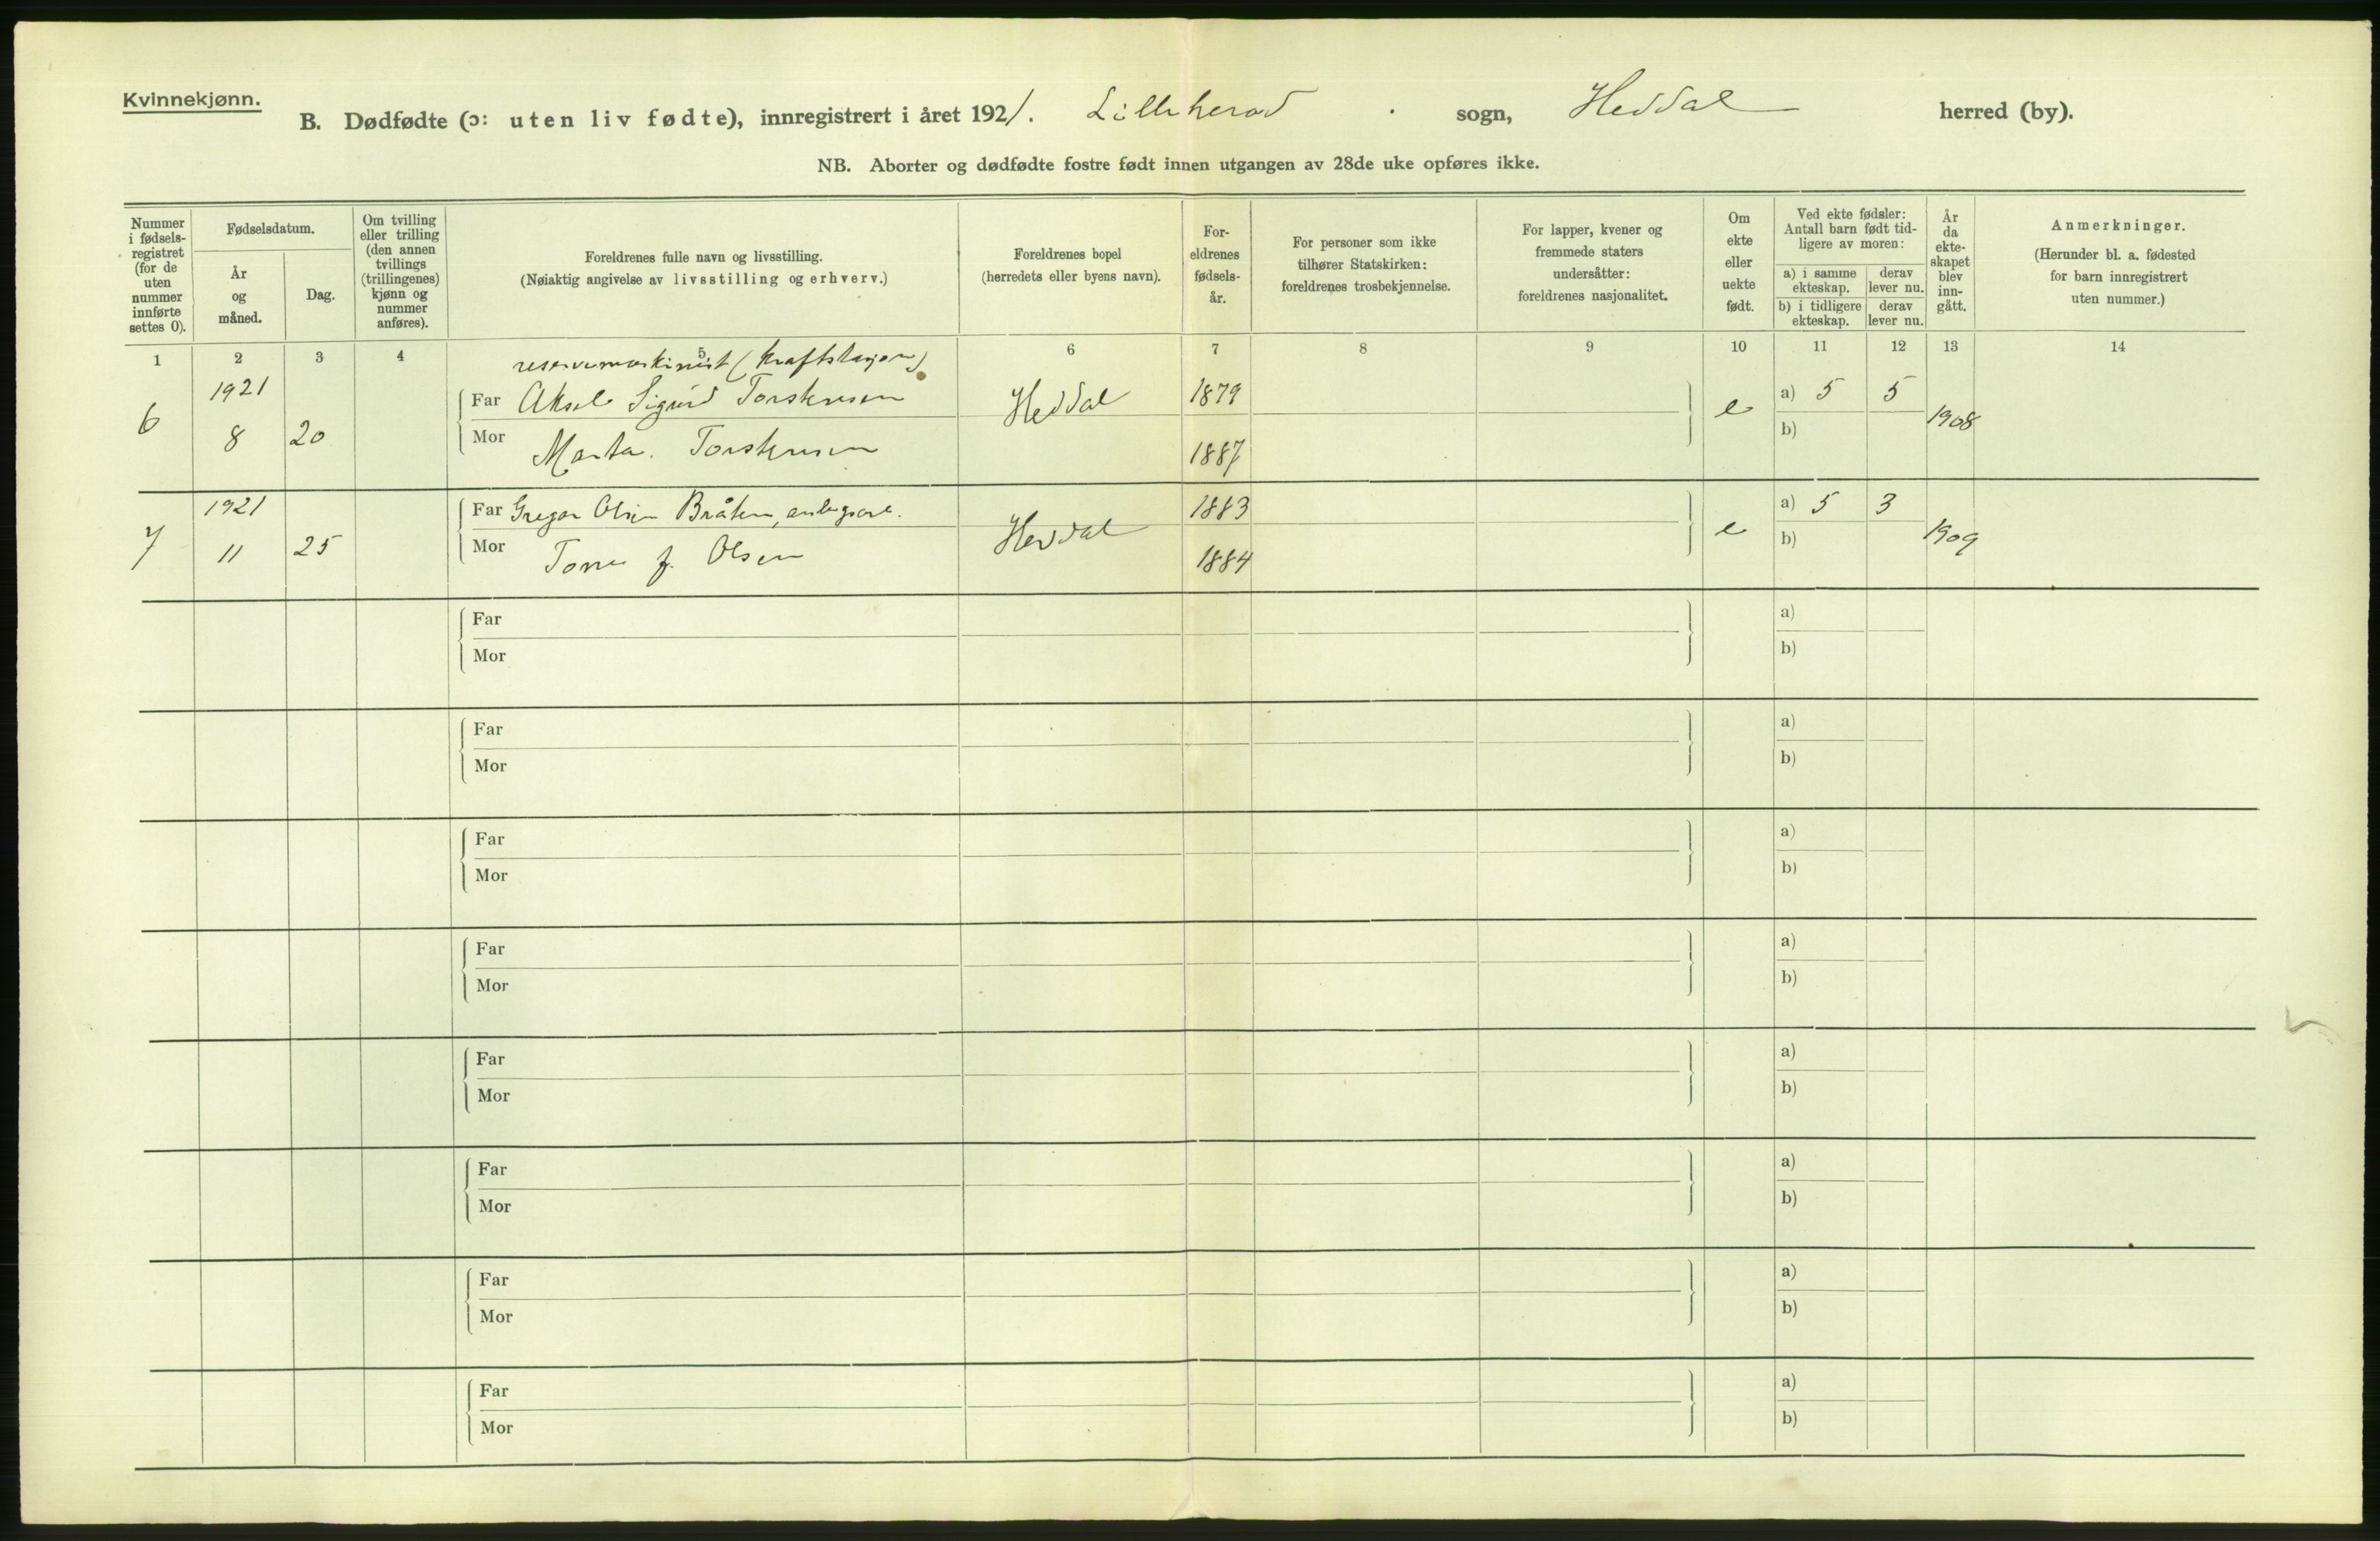 Kvinnekjønn.
B. Dødfødte (ɔ: uten liv fødte), innregistrert i året 1921. Lilleherad sogn, Heddal herred (by).
NB. Aborter og dødfødte fostre født innen utgangen av 28de uke opføres ikke.
Nummer i fødsels-registret (for de uten nummer innførte settes 0).
Fødselsdatum.
År og måned.
Dag.
Om tvilling eller trilling (den annen tvillings (trillingenes) kjønn og nummer anføres).
Foreldrenes fulle navn og livsstilling.
(Nøiaktig angivelse av livsstilling og erhverv.)
Foreldrenes bopel
(herredets eller byens navn).
For-eldrenes fødsels-år.
For personer som ikke tilhører Statskirken: foreldrenes trosbekjennelse.
For lapper, kvener og fremmede staters undersåtter: foreldrenes nasjonalitet.
Om ekte eller uekte født.
Ved ekte fødsler: Antall barn født tid-ligere av moren:
a) i samme ekteskap.
derav lever nu.
b) i tidligere ekteskap.
derav lever nu.
År da ekte-skapet blev inn-gått.
Anmerkninger.
(Herunder bl. a. fødested for barn innregistrert uten nummer.)
1 2 3 4 5 6 7 8 9 10 11 12 13 14
reservemaskinist (kraftstasjon)
6 1921 8 20
Far Aksel Sigurd Torstensen Heddal 1879 e a) 5 5 1908
Mor Marta Torstensen 1887 b)
7 1921 11 25
Far Gregar Olsen Bråten, Heddal 1883 e a) 5 3 1909
Mor Tone f. Olsen 1884 b)
Far a)
Mor b)
Far a)
Mor b)
Far a)
Mor b)
Far a)
Mor b)
Far a)
Mor b)
Far a)
Mor b)
Far a)
Mor b)
Far a)
Mor b)